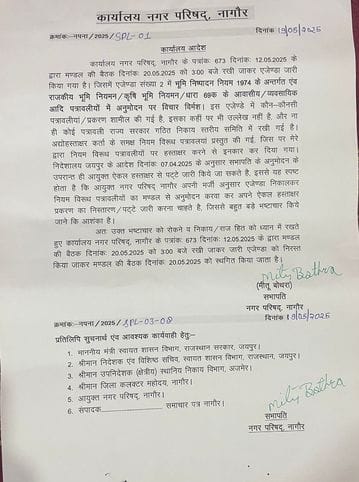 कार्यालय नगर परिषद्, नागौर
क्रमांकः-नपना/2025/SPL-01 दिनांक 19/05/2025
कार्यालय आदेश
कार्यालय नगर परिषद्, नागौर के पत्रांक: 673 दिनांक: 12.05.2025 के
द्वारा मण्डल की बैठक दिनांक: 20.05.2025 को 3.00 बजे रखी जाकर एजेण्डा जारी
किया गया है। जिसमें एजेण्डा संख्या 2 में भूमि निष्पादन नियम 1974 के अन्तर्गत एंव
राजकीय भूमि नियमन/कृषि भूमि नियमन/धारा 69क के आवासीय/व्यवसायिक
आदि पत्रावलीयों में अनुमोदन पर विचार विर्मश। इस एजेण्डे में कौन-कौनसी
पत्रावलीयां/प्रकरण शामील की गई है, इसका कहीं पर भी उल्लेख नहीं है, और ना
ही कोई पत्रावली राज्य सरकार गठित निकाय स्तरीय समिति में रखी गई है।
अद्योहस्ताक्षर कर्ता के समक्ष नियम विरूध पत्रावलीयां प्रस्तुत की गई, जिस पर मेरे
द्वारा नियम विरूध पत्रावलीयों पर हस्ताक्षर करने से इनकार कर दिया गया।
निदेशालय जयपुर के आदेश दिनांक: 07.04.2025 के अनुसार सभापति के अनुमोदन के
उपरान्त ही आयुक्त ऐकल हस्ताक्षर से पट्टे जारी किये जा सकते है, इससे यह स्पष्ट
होता है कि आयुक्त नगर परिषद् नागौर अपनी मर्जी अनुसार एजेण्डा निकालकर
नियम विरूध पत्रावलीयों का मण्डल से अनुमोदन करवा कर अपने ऐकल हस्ताक्षर
प्रकरण का निस्तारण/पट्टे जारी करना चाहते है, जिससे बहुत बडे भष्टाचार किये
जाने कि आशंका है।
अतः उक्त भष्टाचार को रोकने व निकाय/राज हित को ध्यान में रखते
हुए कार्यालय नगर परिषद्, नागौर के पत्रांक: 673 दिनांक: 12.05.2025 के द्वारा मण्डल
की बैठक दिनांक: 20.05.2025 को 3.00 बजे रखी जाकर जारी एजेण्डा को निरस्त
किया जाकर मण्डल की बैठक दिनांक: 20.05.2025 को स्थगित किया जाता है।
Mitu Bothra
(मीतू बोथरा)
सभापति
नगर परिषद्, नागौर
क्रमांकः-नपना/2025/SPL-03-08 दिनांक 19/05/2025
प्रतिलिपि सुचनार्थ एंव आवश्यक कार्यवाही हेतुः-
1. माननीय मंत्री स्वायत शासन विभाग, राजस्थान सरकार, जयपुर।
2. श्रीमान निदेशक एंव विशिष्ठ सचिव, स्वायत शासन विभाग, राजस्थान, जयपुर।
3. श्रीमान उपनिदेशक (क्षेत्रीय) स्थानिय निकाय विभाग, अजमेर।
4. श्रीमान जिला कलक्टर महोदय, नागौर।
5. आयुक्त नगर परिषद्, नागौर।
6. संपादक................................समाचार पत्र नागौर।
Mitu Bothra
सभापति
नगर परिषद्, नागौर